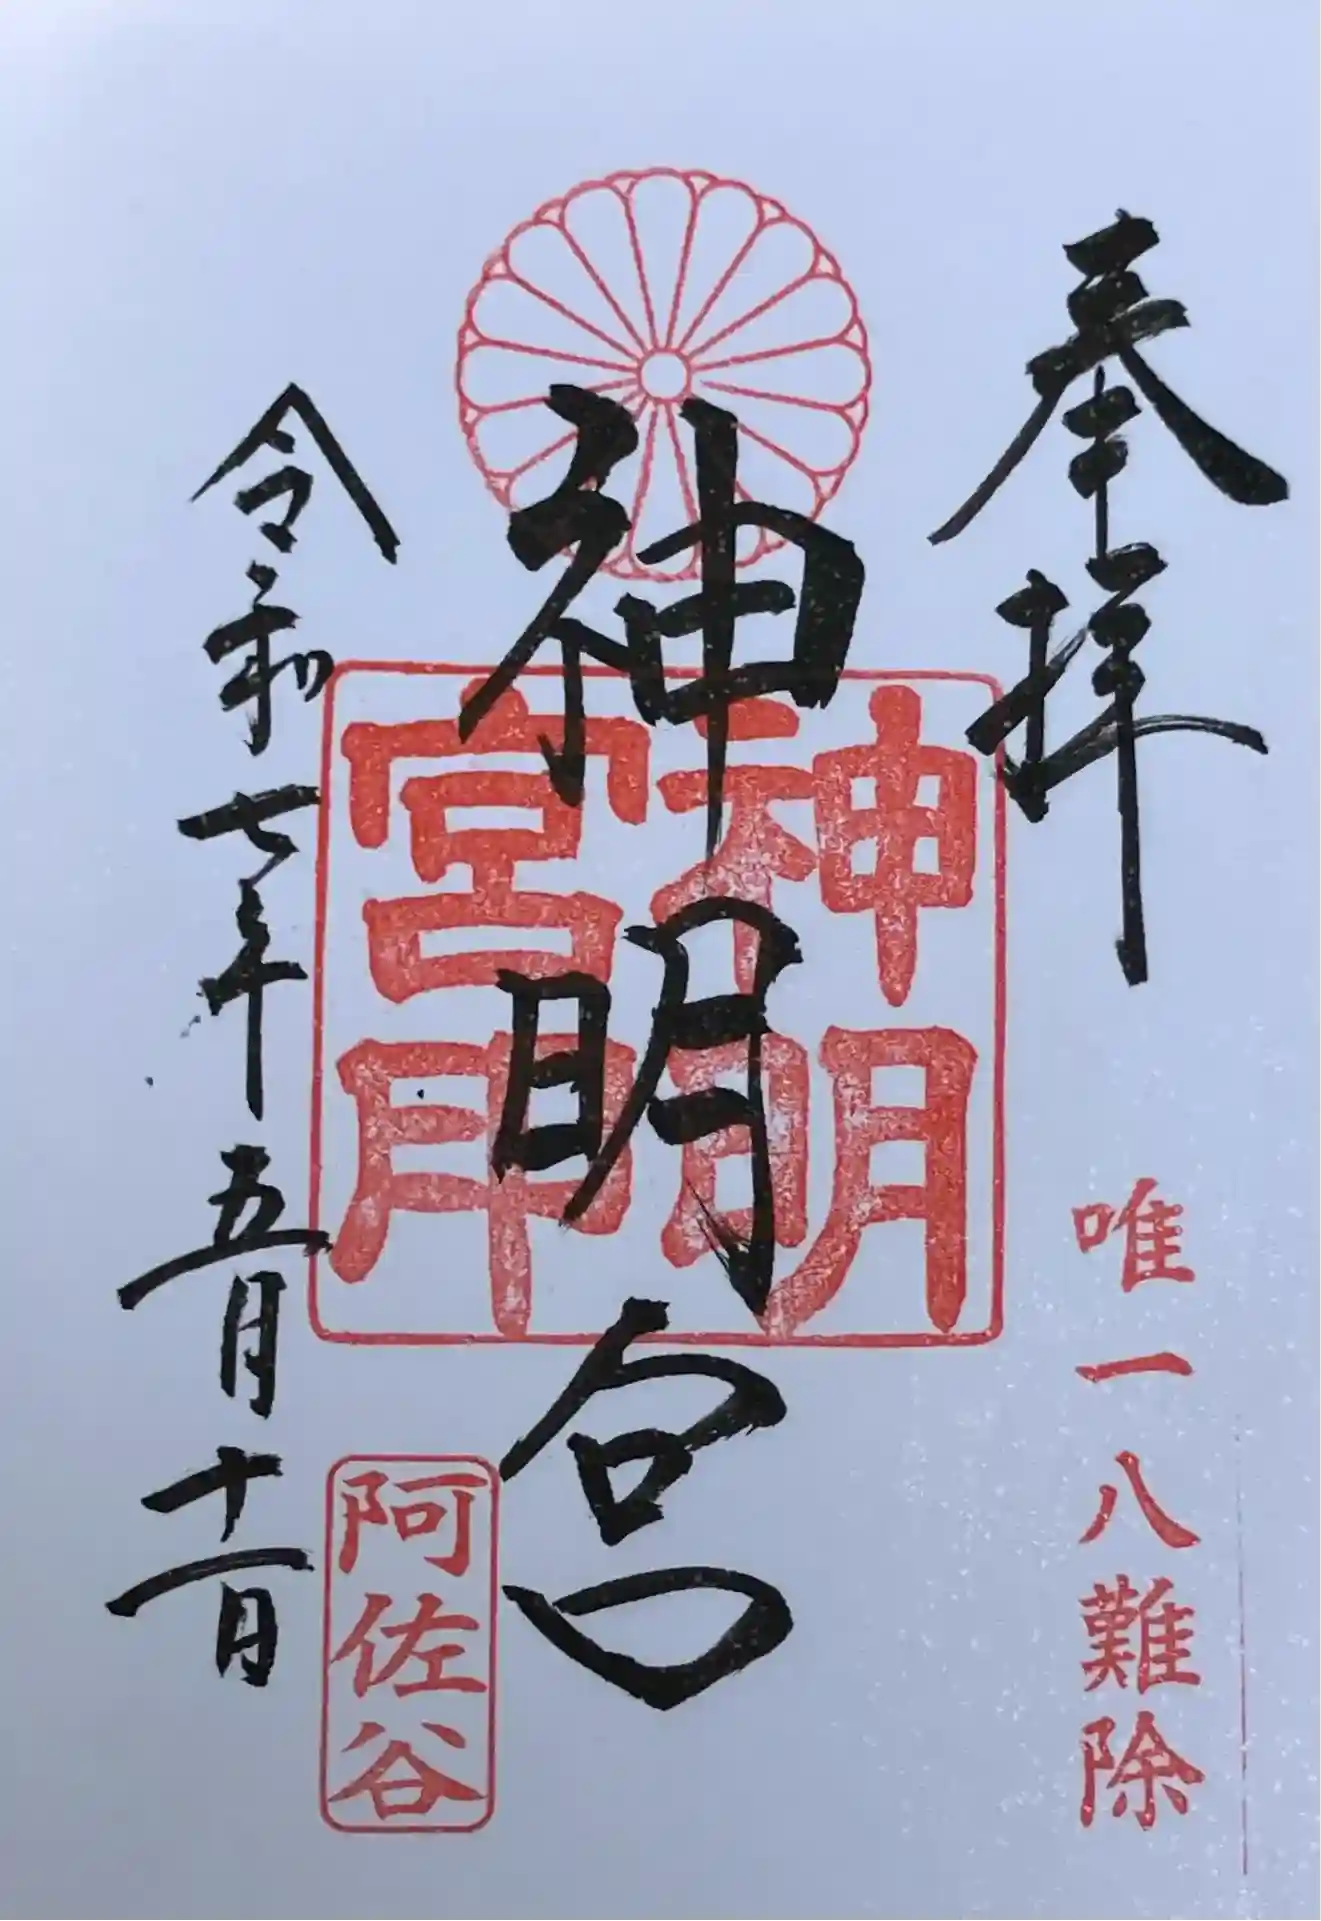 奉拝
唯一八難除
神明宮
神明
宮印
令和七年五月十一日
阿佐谷